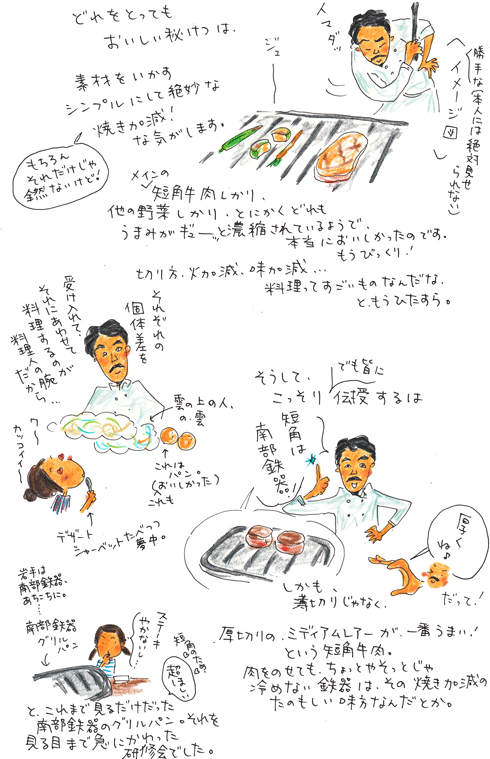 どれをとっても
おいしい秘けつは、
素材をいかす
シンプルにして絶妙な
焼き加減！
な気がします。
もちろん
それだけじゃ
全然ないけど！
マダッ
ジュー
勝手な(本人には絶対見せ
られない)
イメージ図
メインの
短角牛肉しかり、
他の野菜しかり、とにかくどれも
うまみがギューッと濃縮されているようで、
本当においしかったのです。
もうびっくり！
切り方、火加減、味加減…
料理ってすごいものなんだな、
と、もうひたすら。
それぞれの
個体差を
受け入れて、
それにあわせて
料理するのが
料理人の腕
だから…
雲の上の人、
の、雲
これは
パン。
(おいしかった)
これも
クー
カッコイイ〜
デザート
シャーベットたべつつ
夢中。
そうして、
こっそり
でも皆に
伝授するは
短角は
南部鉄器。
厚く
ね♪
しかも、
薄切りじゃなく、
だって！
厚切りの、ミディアムレアーが、一番うまい！
という短角牛肉。
肉をのせても、ちょっとやそっとじゃ
冷めない鉄器は、その焼き加減の
たのもしい味方なんだとか。
岩手は
南部鉄器、
あちこちに。
南部鉄器
グリル
パン
ステーキ
やかないし…
短角のため
超ほしい
と、これまで見るだけだった
南部鉄器のグリルパン。それを
見る目まで急にかわった
研修会でした。